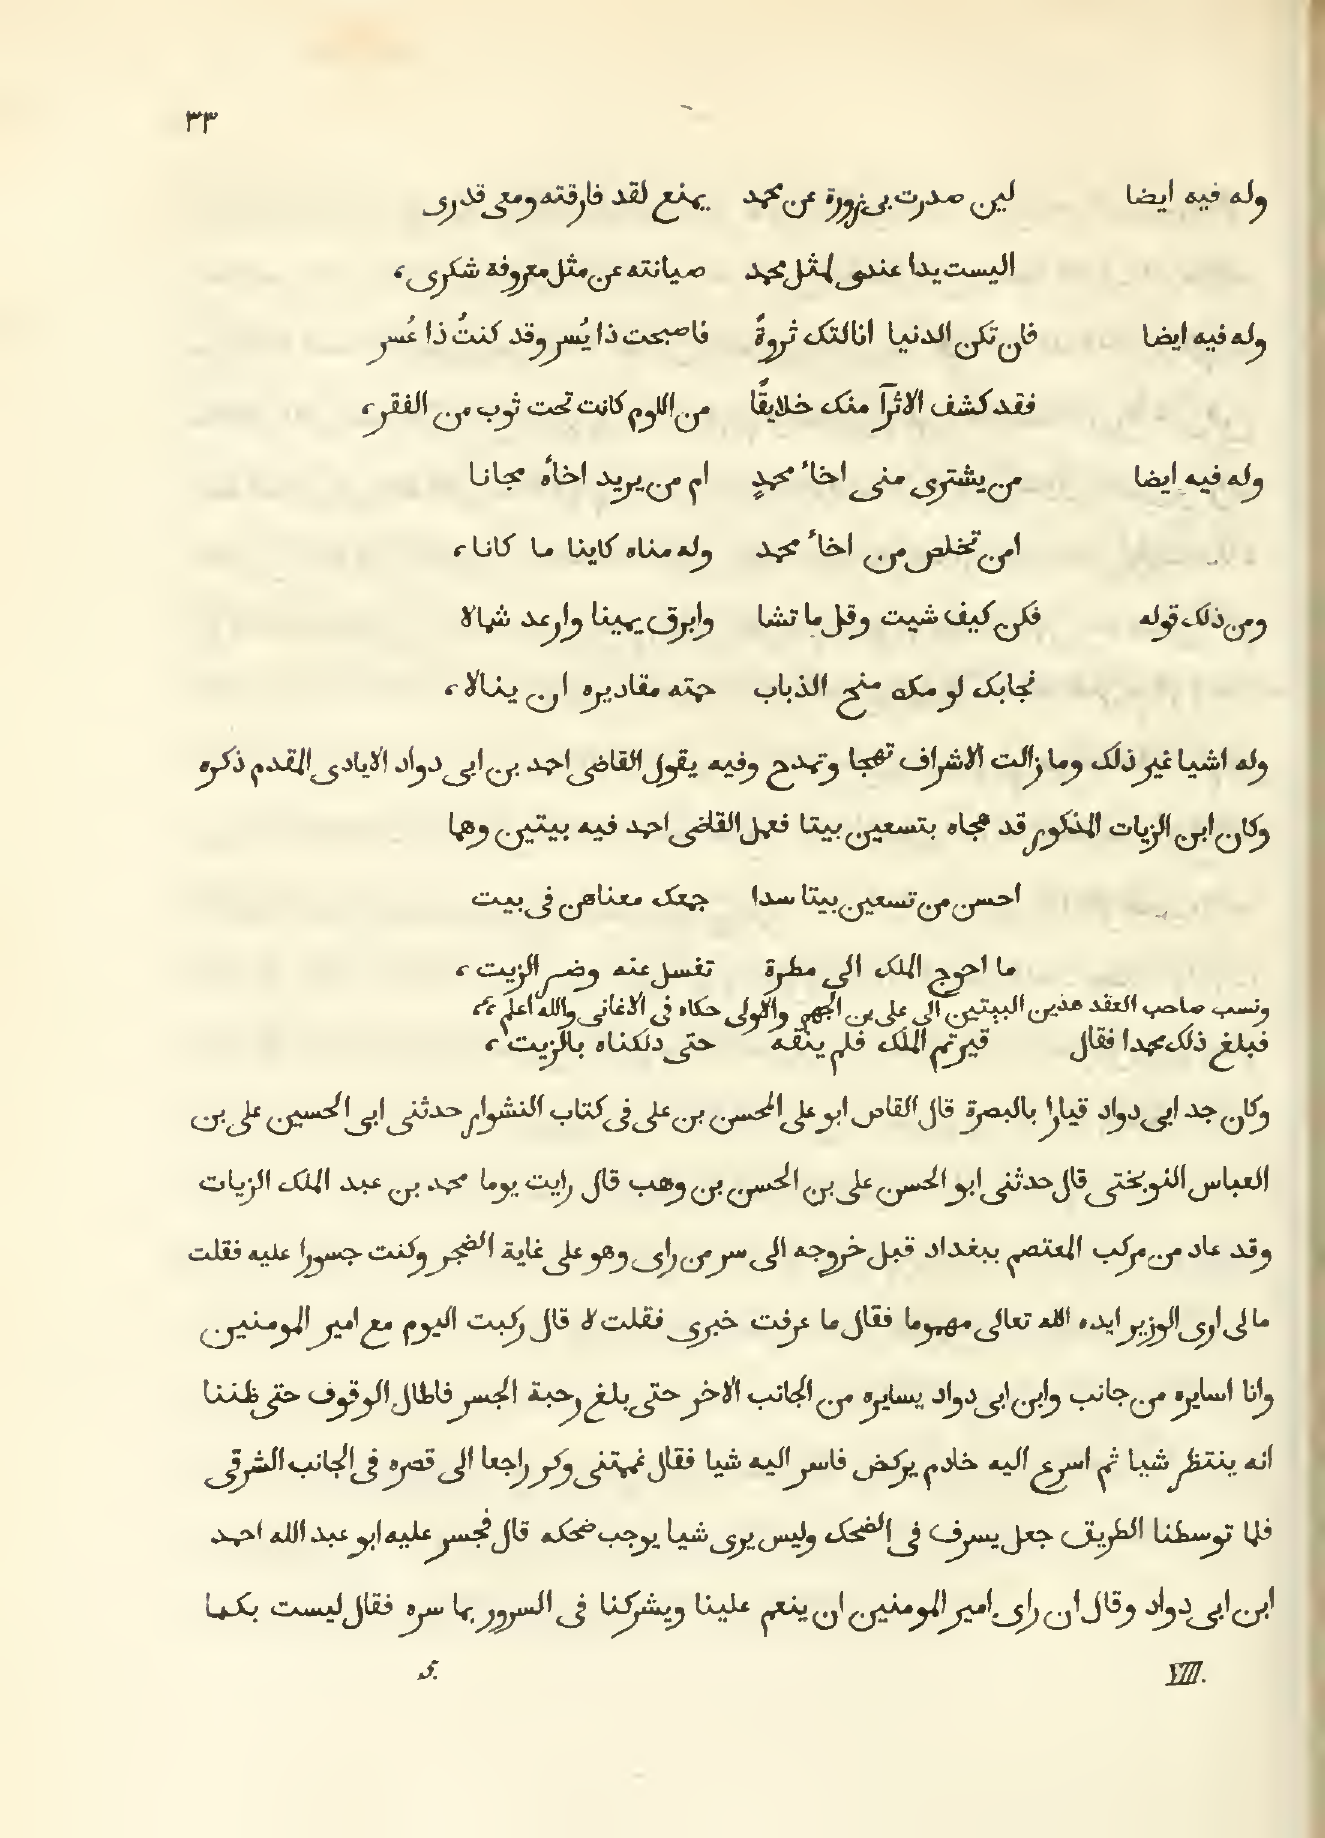 ٣٣
وله فيه ايضا لين صدرت بى زورة عن محمد يمنع لقد فارقته ومعى قدرى
اليست يدا عندى لمثل محمد صيانته عن مثل معروفه شكرى ،
وله فيه ايضا فان تكن الدنيا انالتك ثروةً فاصبحت ذا يُسر وقد كنتُ ذا عُسر
فقد كشف الاثرآ منك خلايقًا من اللوم كانت تحت ثوب من الفقر ،
وله فيه ايضا من يشترى منى اخاءَ محمدٍ ام من يريد اخاهٔ مجانا
امن تخلص من اخاءَ محمد وله مناه كاينا ما كانا ،
ومن ذلك قوله فكن كيف شيت وقل ما تشا وابرق يمينا وارعد شمالا
نجابك لو مك منجى الذباب حمته مقاديره ان ينالا ،
وله اشيا غير ذلك وما زالت الاشراف تهجا وتمدح وفيه يقول القاضى احمد بن ابى دواد الايادى المقدم ذكره
وكان ابن الزيات المذكور قد هجاه بتسعين بيتا فعمل القاضى احمد فيه بيتين وهما
احسن من تسعين بيتا سدا جمعك معناهن فى بيت
ما احوج الملك الى مطرة تغسل عنه وضر الزيت ،
ونسب صاحب العقد هذين البيتين الى على بن الجهم والاولى حكاه فى الاغانى والله اعلم ،،
فبلغ ذلك محمدا فقال قيرتم الملك فلم ينقه حتى دلكناه بالزيت ،
وكان جد ابى دواد قيارا بالبصرة قال القاض ابو على المحسن بن على فى كتاب النشوار حدثنى ابى الحسين على بن
العباس النوبختى قال حدثنى ابو الحسن على بن الحسن بن وهب قال رايت يوما محمد بن عبد الملك الزيات
وقد عاد من مركب المعتصم ببغداد قبل خروجه الى سر من راى وهو على غاية الضجر وكنت جسورا عليه فقلت
ما لى ارى الوزير ايده الله تعالى مهموما فقال ما عرفت خبرى فقلت لا قال ركبت اليوم مع امير المومنين
وانا اسايره من جانب وابن ابى دواد يسايره من الجانب الاخر حتى بلغ رحبة الجسر فاطال الوقوف حتى ظننا
انه ينتظر شيا ثم اسرع اليه خادم يركض فاسر اليه شيا فقال غمتنى وكر راجعا الى قصره فى الجانب الشرقى
فلما توسطنا الطريق جعل يسرف فى الضحك وليس يرى شيا يوجب ضحكه قال فجسر عليه ابو عبد الله احمد
ابن ابى دواد وقال ان راى امير المومنين ان ينعم علينا ويشركنا فى السرور بما سره فقال ليست بكما
VIII. 5.